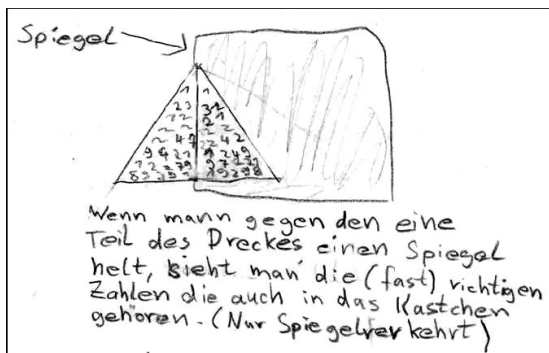 Spiegel
Wenn mann gegen den eine
Teil des Dreckes einen Spiegel
helt, sieht man die (fast) richtigen
Zahlen die auch in das Kastchen
gehören. (Nur Spiegelverkehrt)